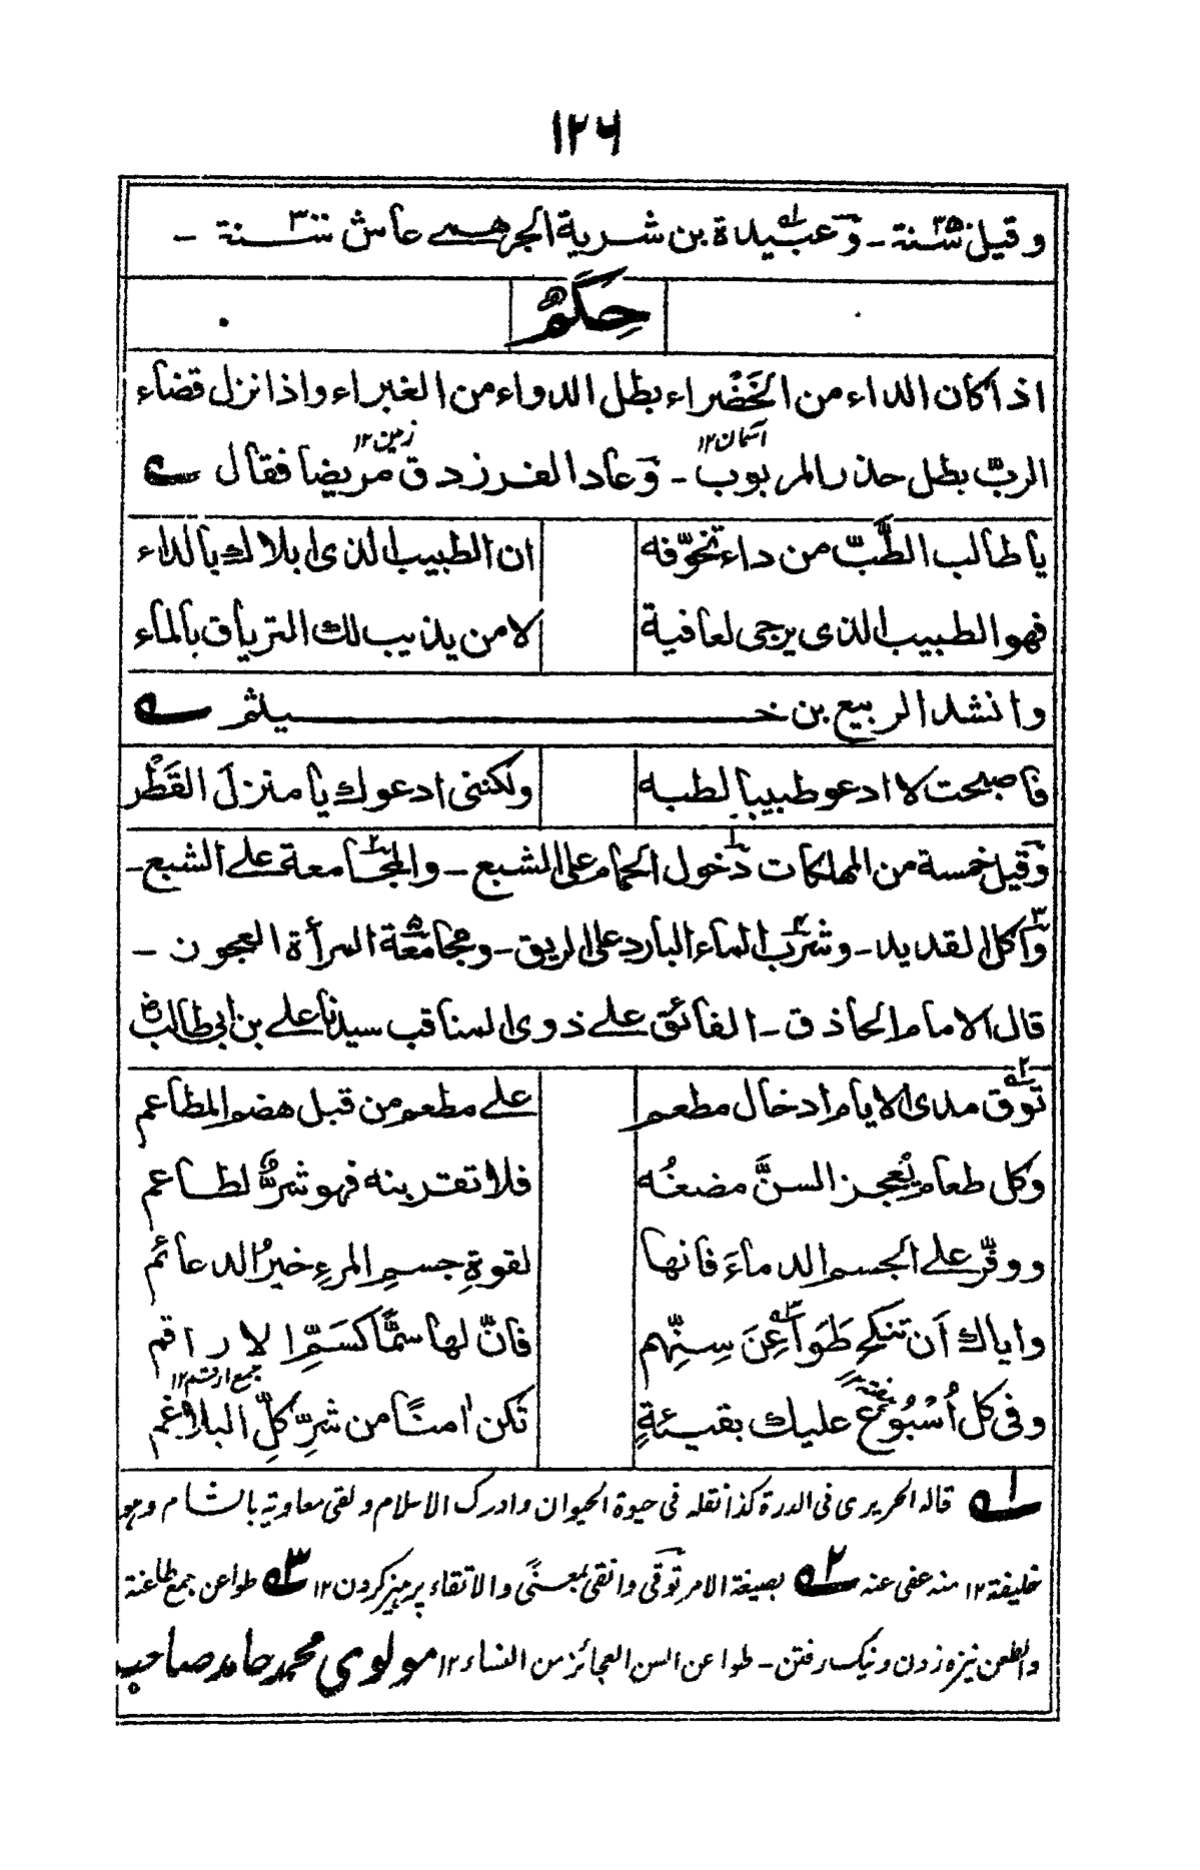 ١٢٦
وقيل ٣٥ سنة ـ وعبيدة بن شرية الجرهمي عاش ٣٠٠ سنة ـ
حِكَمٌ
اذا كان الداء من الخَضْراء بطل الدواء من الغبراء واذا نزل قضاء
آسمان ١٢ زمین ١٢
الربّ بطل حذر المربوب ـ وعاد الفرزدق مريضا فقال ے
يا طالب الطّبّ من داء تخوّفه ان الطبيب الذى ابلاك بالداء
فهو الطبيب الذى يرجى لعافية لا من يذيب لك الترياق بالماء
وانشد الربيع بن خيثم ے
فاصبحت لا ادعو طبيبا لطبه ولكننى ادعوك يا منزلَ القَطْر
وقيل خمسة من المهلكات دخول الحمام على الشبع ـ والمجامعة على الشبع ـ
واكل القديد ـ وشرب الماء البارد على الريق ـ ومجامعة المرأة العجون ـ
قال الامام الحاذق ـ الفائق على ذوى المناقب سيدنا على بن ابى طالب رض
توق مدى الايام ادخال مطعم على مطعم من قبل هضم المطاعم
وكل طعام يُعجز السنَّ مضغُه فلا تقربنه فهو شرٌّ لطاعم
ووفّر على الجسم الدماءَ فانها لقوةِ جسمِ المرءِ خيرُ الدعائم
واياك اَن تنكح طَوَاعِنَ سِنِّهم فانّ لها سمًّا كسَمِّ الاراقم
جمع ارقم ١٢
وفى كل اُسْبُوع عليك بقيئةٍ تكن امنًا من شرِّ كلِّ البلاغم
١ے قاله الحريرى فى الدرة كذا نقله فى حيوة الحيوان وادرك الاسلام ولقى معاوية بالشام وهو
خليفة ١٢ منه عفى عنه ٢ے بصيغة الامر توقى واتقى بمعنًى والاتقاء پرہیز کردن ١٢ ٣ے طواعن جمع طاعنة
والطعن نیزه زدن ونیک سار رفتن ـ طواعن السن العجائز من النساء ١٢ مولوی محمد حامد صاحب